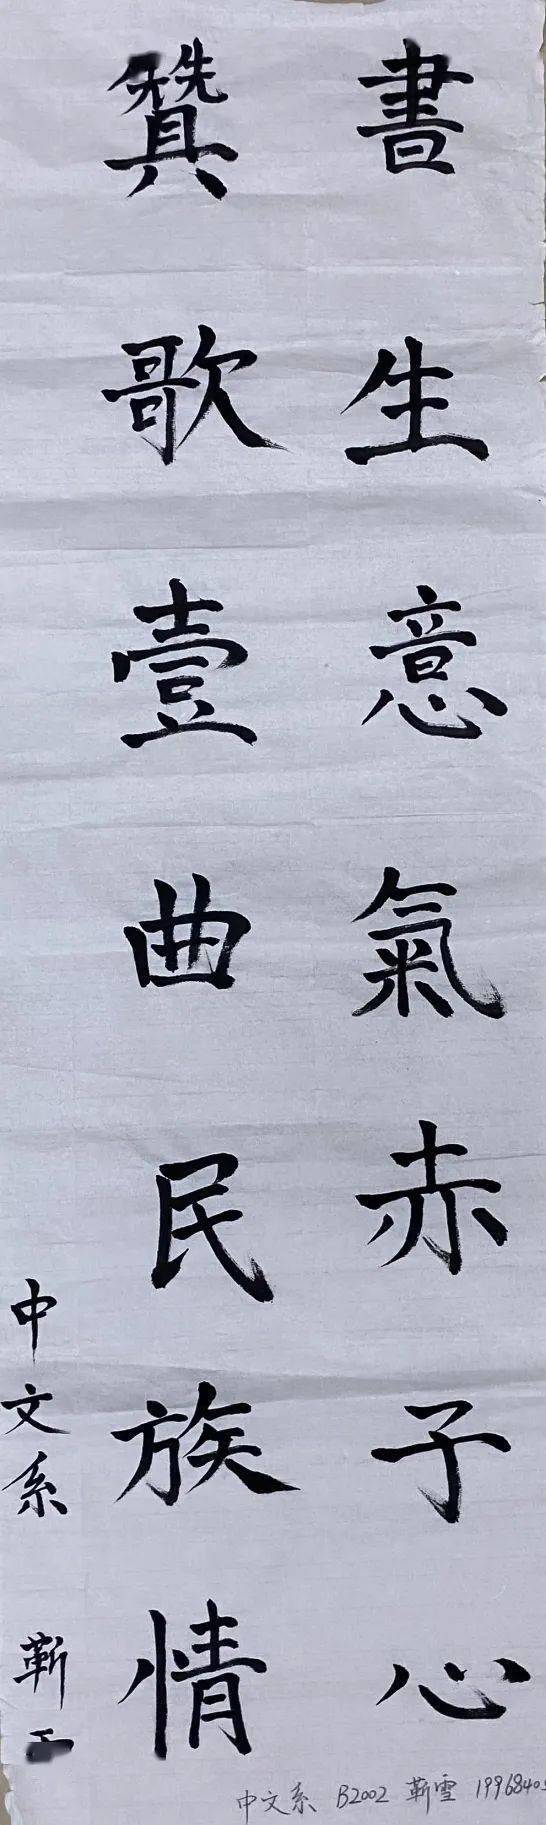 書生意氣赤子心
贊歌壹曲民族情
中文系 靳
中文系 B2002 靳雪 1996840